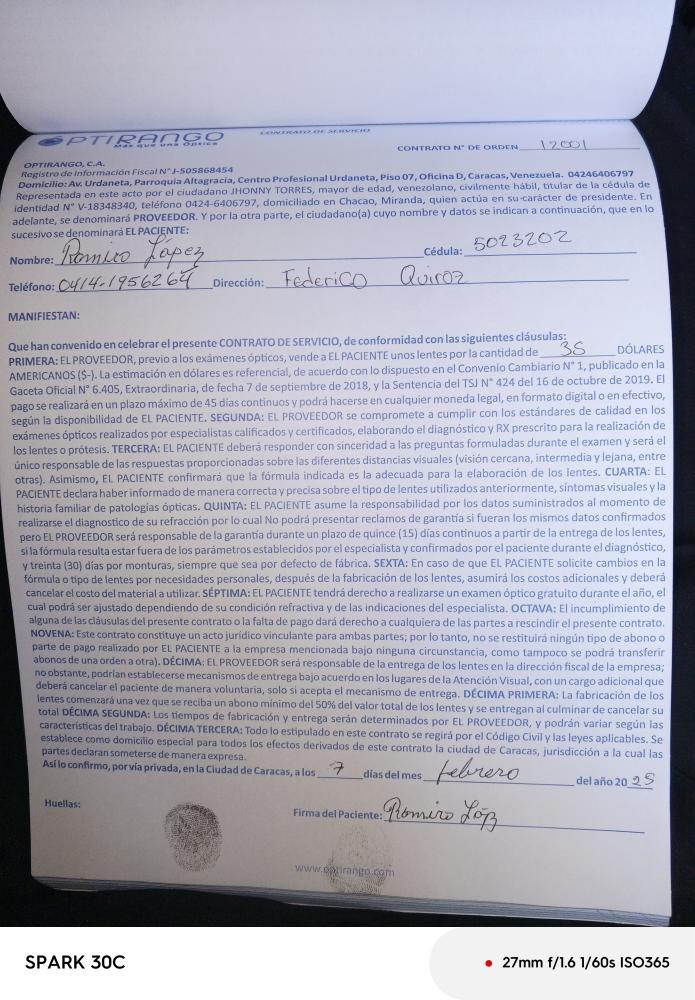 OPTIRANGO
Más que una Óptica
CONTRATO DE SERVICIO
CONTRATO N° DE ORDEN 12001
OPTIRANGO, C.A.
Registro de Información Fiscal N° J-505868454
Domicilio: Av. Urdaneta, Parroquia Altagracia, Centro Profesional Urdaneta, Piso 07, Oficina D, Caracas, Venezuela. 04246406797
Representada en este acto por el ciudadano JHONNY TORRES, mayor de edad, venezolano, civilmente hábil, titular de la cédula de
identidad N° V-18348340, teléfono 0424-6406797, domiciliado en Chacao, Miranda, quien actúa en su carácter de presidente. En
adelante, se denominará PROVEEDOR. Y por la otra parte, el ciudadano(a) cuyo nombre y datos se indican a continuación, que en lo
sucesivo se denominará EL PACIENTE:
Nombre: Ramiro López Cédula: 5023202
Teléfono: 0414-1956264 Dirección: Federico Quiroz
MANIFIESTAN:
Que han convenido en celebrar el presente CONTRATO DE SERVICIO, de conformidad con las siguientes cláusulas:
PRIMERA: EL PROVEEDOR, previo a los exámenes ópticos, vende a EL PACIENTE unos lentes por la cantidad de 35 DÓLARES
AMERICANOS ($-). La estimación en dólares es referencial, de acuerdo con lo dispuesto en el Convenio Cambiario N° 1, publicado en la
Gaceta Oficial N° 6.405, Extraordinaria, de fecha 7 de septiembre de 2018, y la Sentencia del TSJ N° 424 del 16 de octubre de 2019. El
pago se realizará en un plazo máximo de 45 días continuos y podrá hacerse en cualquier moneda legal, en formato digital o en efectivo,
según la disponibilidad de EL PACIENTE. SEGUNDA: EL PROVEEDOR se compromete a cumplir con los estándares de calidad en los
exámenes ópticos realizados por especialistas calificados y certificados, elaborando el diagnóstico y RX prescrito para la realización de
los lentes o prótesis. TERCERA: EL PACIENTE deberá responder con sinceridad a las preguntas formuladas durante el examen y será el
único responsable de las respuestas proporcionadas sobre las diferentes distancias visuales (visión cercana, intermedia y lejana, entre
otras). Asimismo, EL PACIENTE confirmará que la fórmula indicada es la adecuada para la elaboración de los lentes. CUARTA: EL
PACIENTE declara haber informado de manera correcta y precisa sobre el tipo de lentes utilizados anteriormente, síntomas visuales y la
historia familiar de patologías ópticas. QUINTA: EL PACIENTE asume la responsabilidad por los datos suministrados al momento de
realizarse el diagnostico de su refracción por lo cual No podrá presentar reclamos de garantía si fueran los mismos datos confirmados
pero EL PROVEEDOR será responsable de la garantía durante un plazo de quince (15) días continuos a partir de la entrega de los lentes,
si la fórmula resulta estar fuera de los parámetros establecidos por el especialista y confirmados por el paciente durante el diagnóstico,
y treinta (30) días por monturas, siempre que sea por defecto de fábrica. SEXTA: En caso de que EL PACIENTE solicite cambios en la
fórmula o tipo de lentes por necesidades personales, después de la fabricación de los lentes, asumirá los costos adicionales y deberá
cancelar el costo del material a utilizar. SÉPTIMA: EL PACIENTE tendrá derecho a realizarse un examen óptico gratuito durante el año, el
cual podrá ser ajustado dependiendo de su condición refractiva y de las indicaciones del especialista. OCTAVA: El incumplimiento de
alguna de las cláusulas del presente contrato o la falta de pago dará derecho a cualquiera de las partes a rescindir el presente contrato.
NOVENA: Este contrato constituye un acto jurídico vinculante para ambas partes; por lo tanto, no se restituirá ningún tipo de abono o
parte de pago realizado por EL PACIENTE a la empresa mencionada bajo ninguna circunstancia, como tampoco se podrá transferir
abonos de una orden a otra). DÉCIMA: EL PROVEEDOR será responsable de la entrega de los lentes en la dirección fiscal de la empresa;
no obstante, podrían establecerse mecanismos de entrega bajo acuerdo en los lugares de la Atención Visual, con un cargo adicional que
deberá cancelar el paciente de manera voluntaria, solo si acepta el mecanismo de entrega. DÉCIMA PRIMERA: La fabricación de los
lentes comenzará una vez que se reciba un abono mínimo del 50% del valor total de los lentes y se entregan al culminar de cancelar su
total DÉCIMA SEGUNDA: Los tiempos de fabricación y entrega serán determinados por EL PROVEEDOR, y podrán variar según las
características del trabajo. DÉCIMA TERCERA: Todo lo estipulado en este contrato se regirá por el Código Civil y las leyes aplicables. Se
establece como domicilio especial para todos los efectos derivados de este contrato la ciudad de Caracas, jurisdicción a la cual las
partes declaran someterse de manera expresa.
Así lo confirmo, por vía privada, en la Ciudad de Caracas, a los 7 días del mes febrero del año 20 25
Huellas:
Firma del Paciente: Ramiro Lóp
www.optirango.com
SPARK 30C
27mm f/1.6 1/60s ISO365